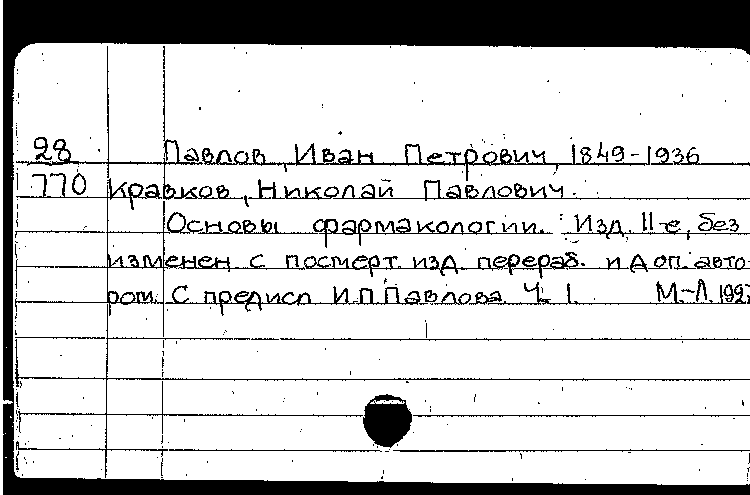 28 Павлов, Иван Петрович, 1849-1936
770 Кравков, Николай Павлович.
Основы фармакологии. Изд. II-е, без
изменен. с посмерт. изд. перераб. и доп. авто-
ром. С предисл. И.П. Павлова. Ч. 1. М.-Л. 1927